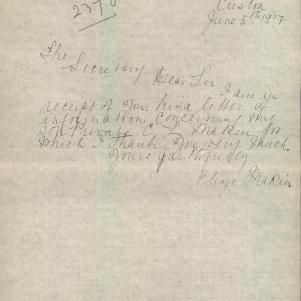 2370
June 5th 1917
The
Secretary Dear Sir
I am in
receipt of your kind letter of
information concerning my
son Private C. Makin for
which I thank you very much.
Yours faithfully
Eliza Makin